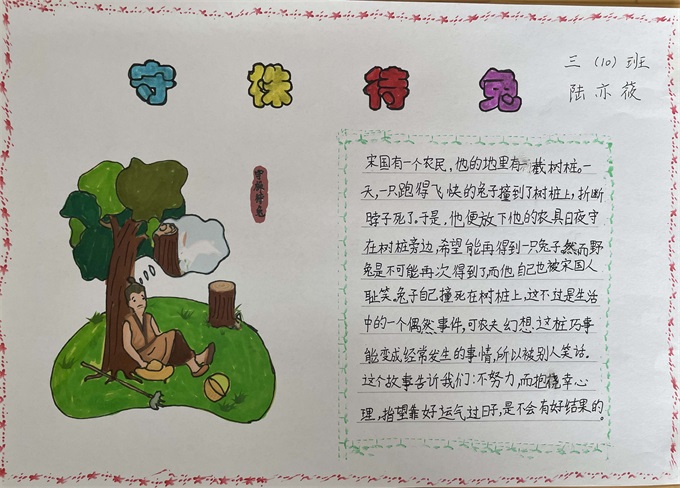 守株待兔
三（10）班
陆亦筱
守株待兔
宋国有一个农民，他的地里有一截树桩。一
天，一只跑得飞快的兔子撞到了树桩上，折断
脖子死了。于是，他便放下他的农具日夜守
在树桩旁边，希望能再得到一只兔子。然而野
兔是不可能再次得到了，而他自己也被宋国人
耻笑。兔子自己撞死在树桩上，这不过是生活
中的一个偶然事件，可农夫幻想：这桩巧事
能变成经常发生的事情，所以被别人笑话。
这个故事告诉我们：不努力，而抱侥幸心
理，指望靠好运气过日子，是不会有好结果的。